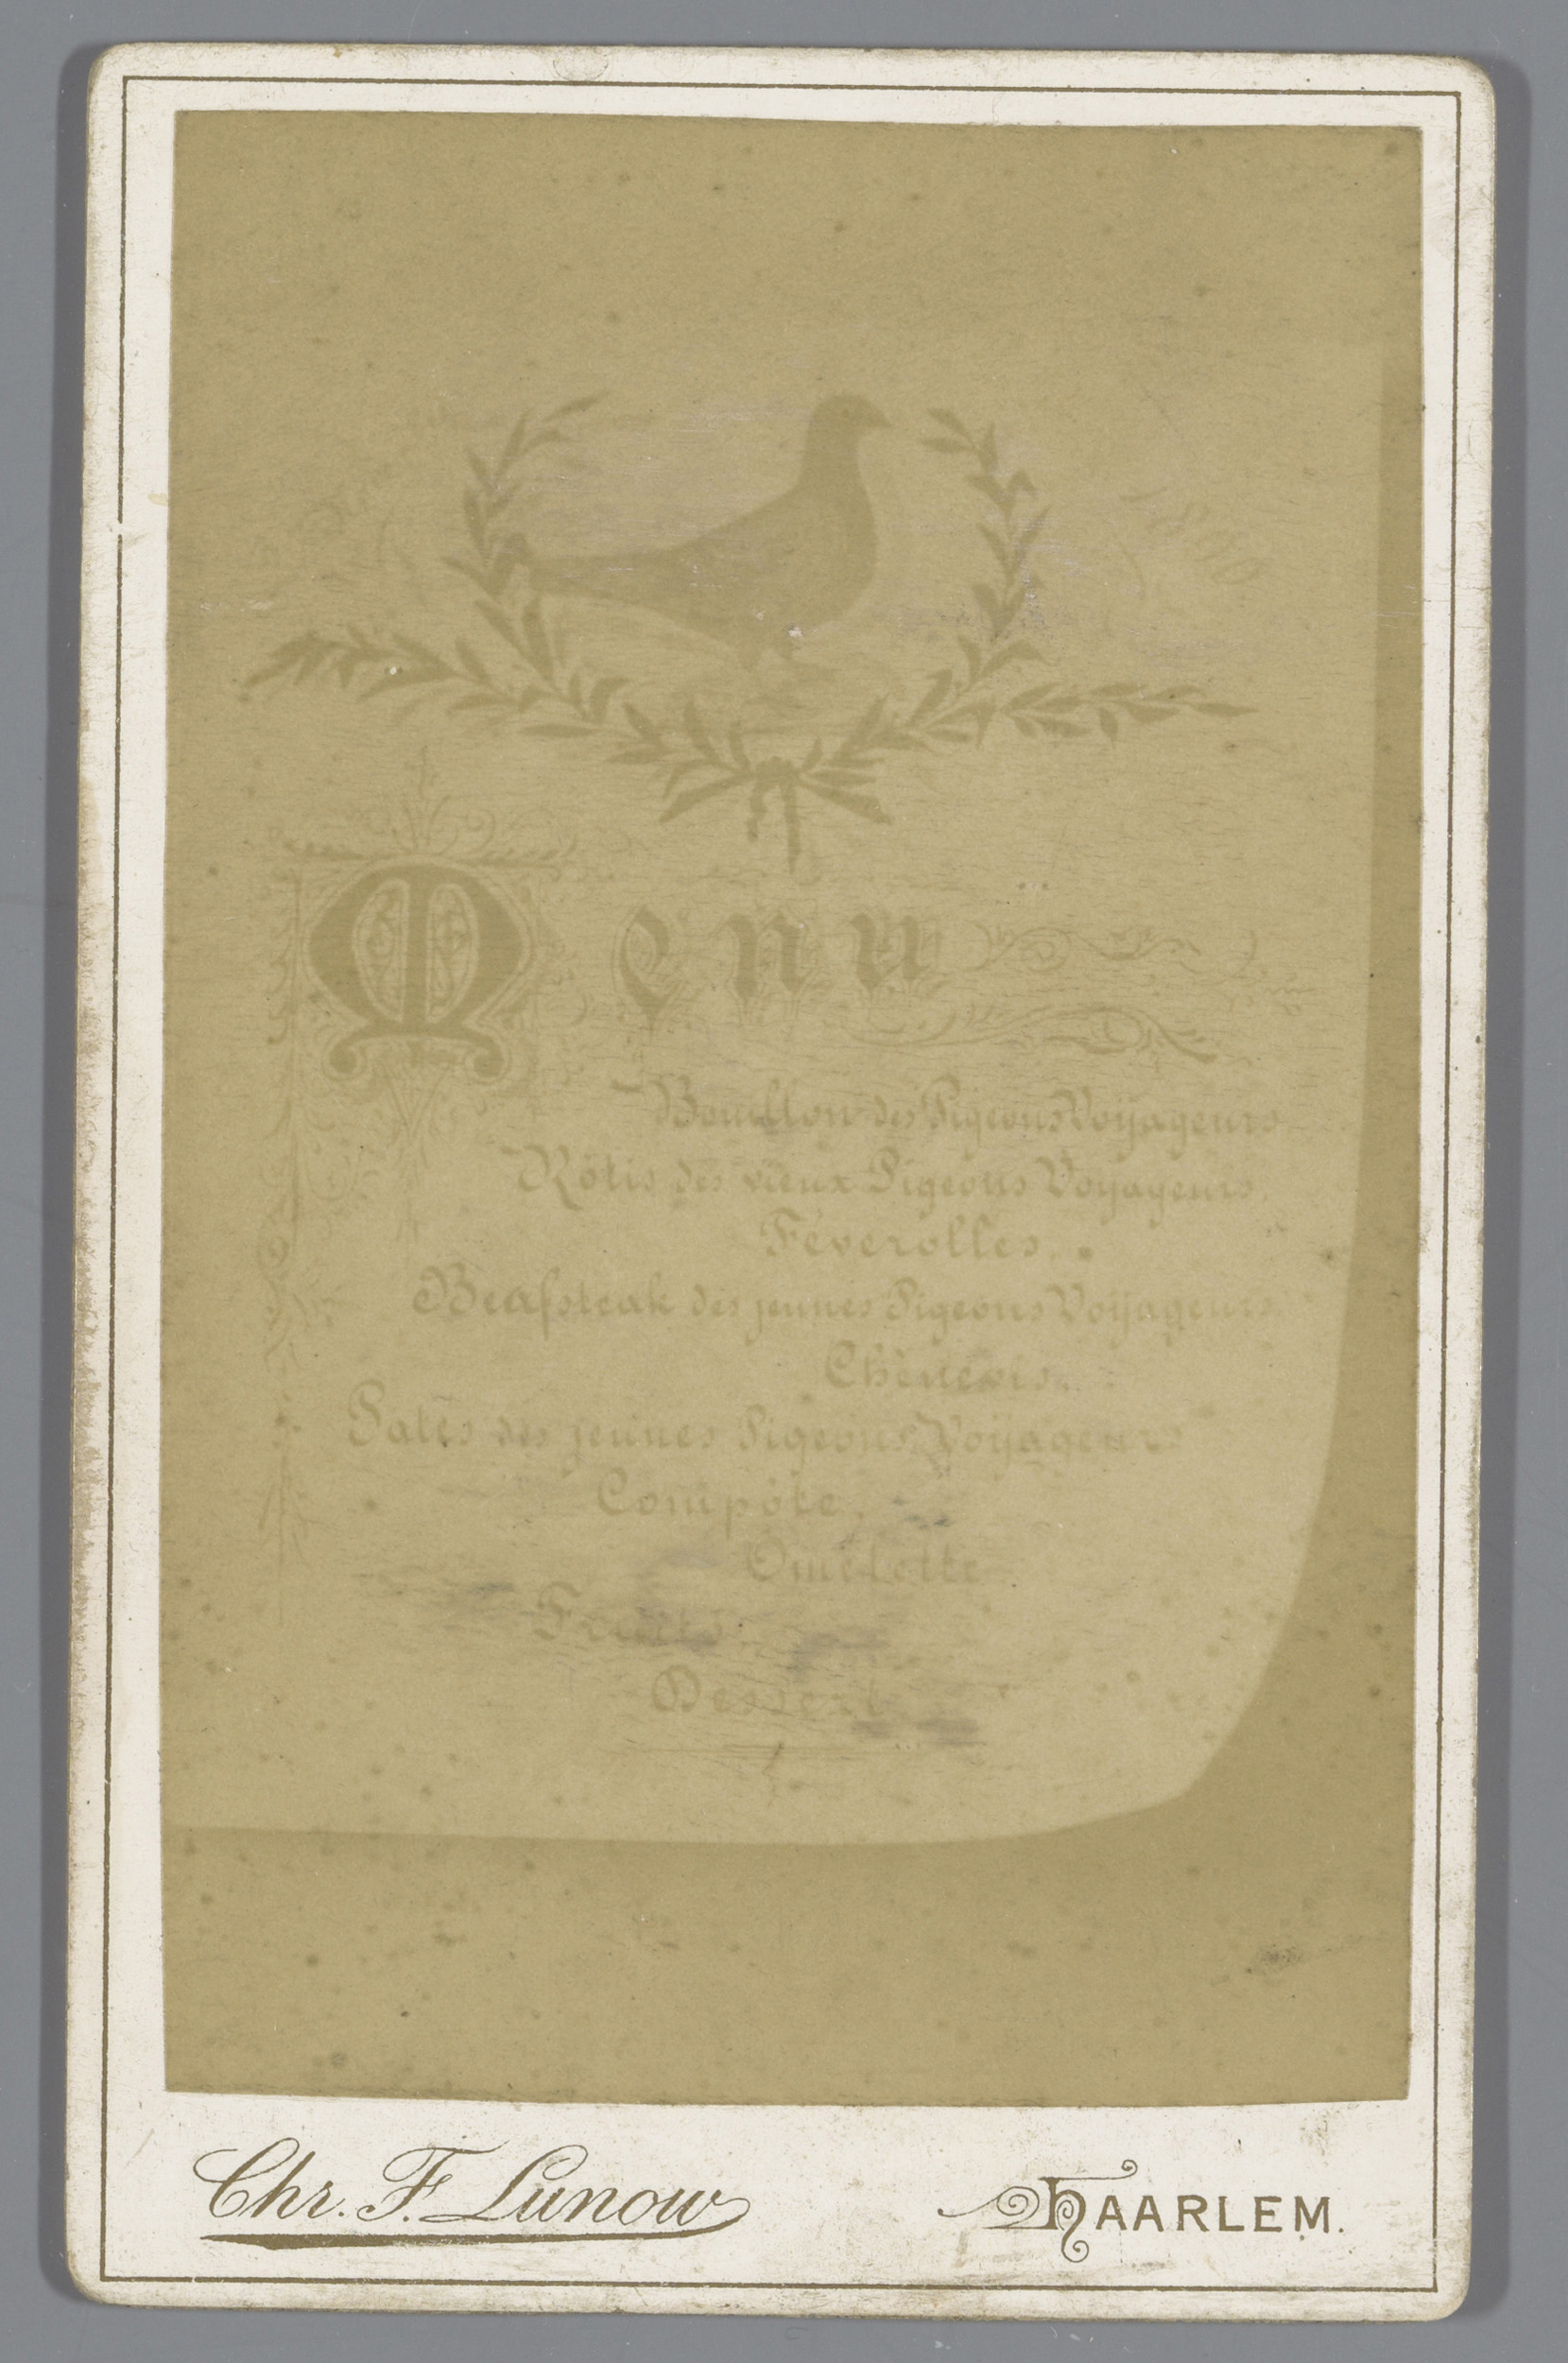 Menu
Bouillon des Pigeons Voyageurs
Rôtis des vieux Pigeons Voyageurs.
Féverolles.
Beafsteak des jeunes Pigeons Voyageurs
Chènevis.
Patés des jeunes Pigeons Voyageurs
Compôte.
Omelette
Fruits
Dessert
Chr. F. Lunow
HAARLEM.